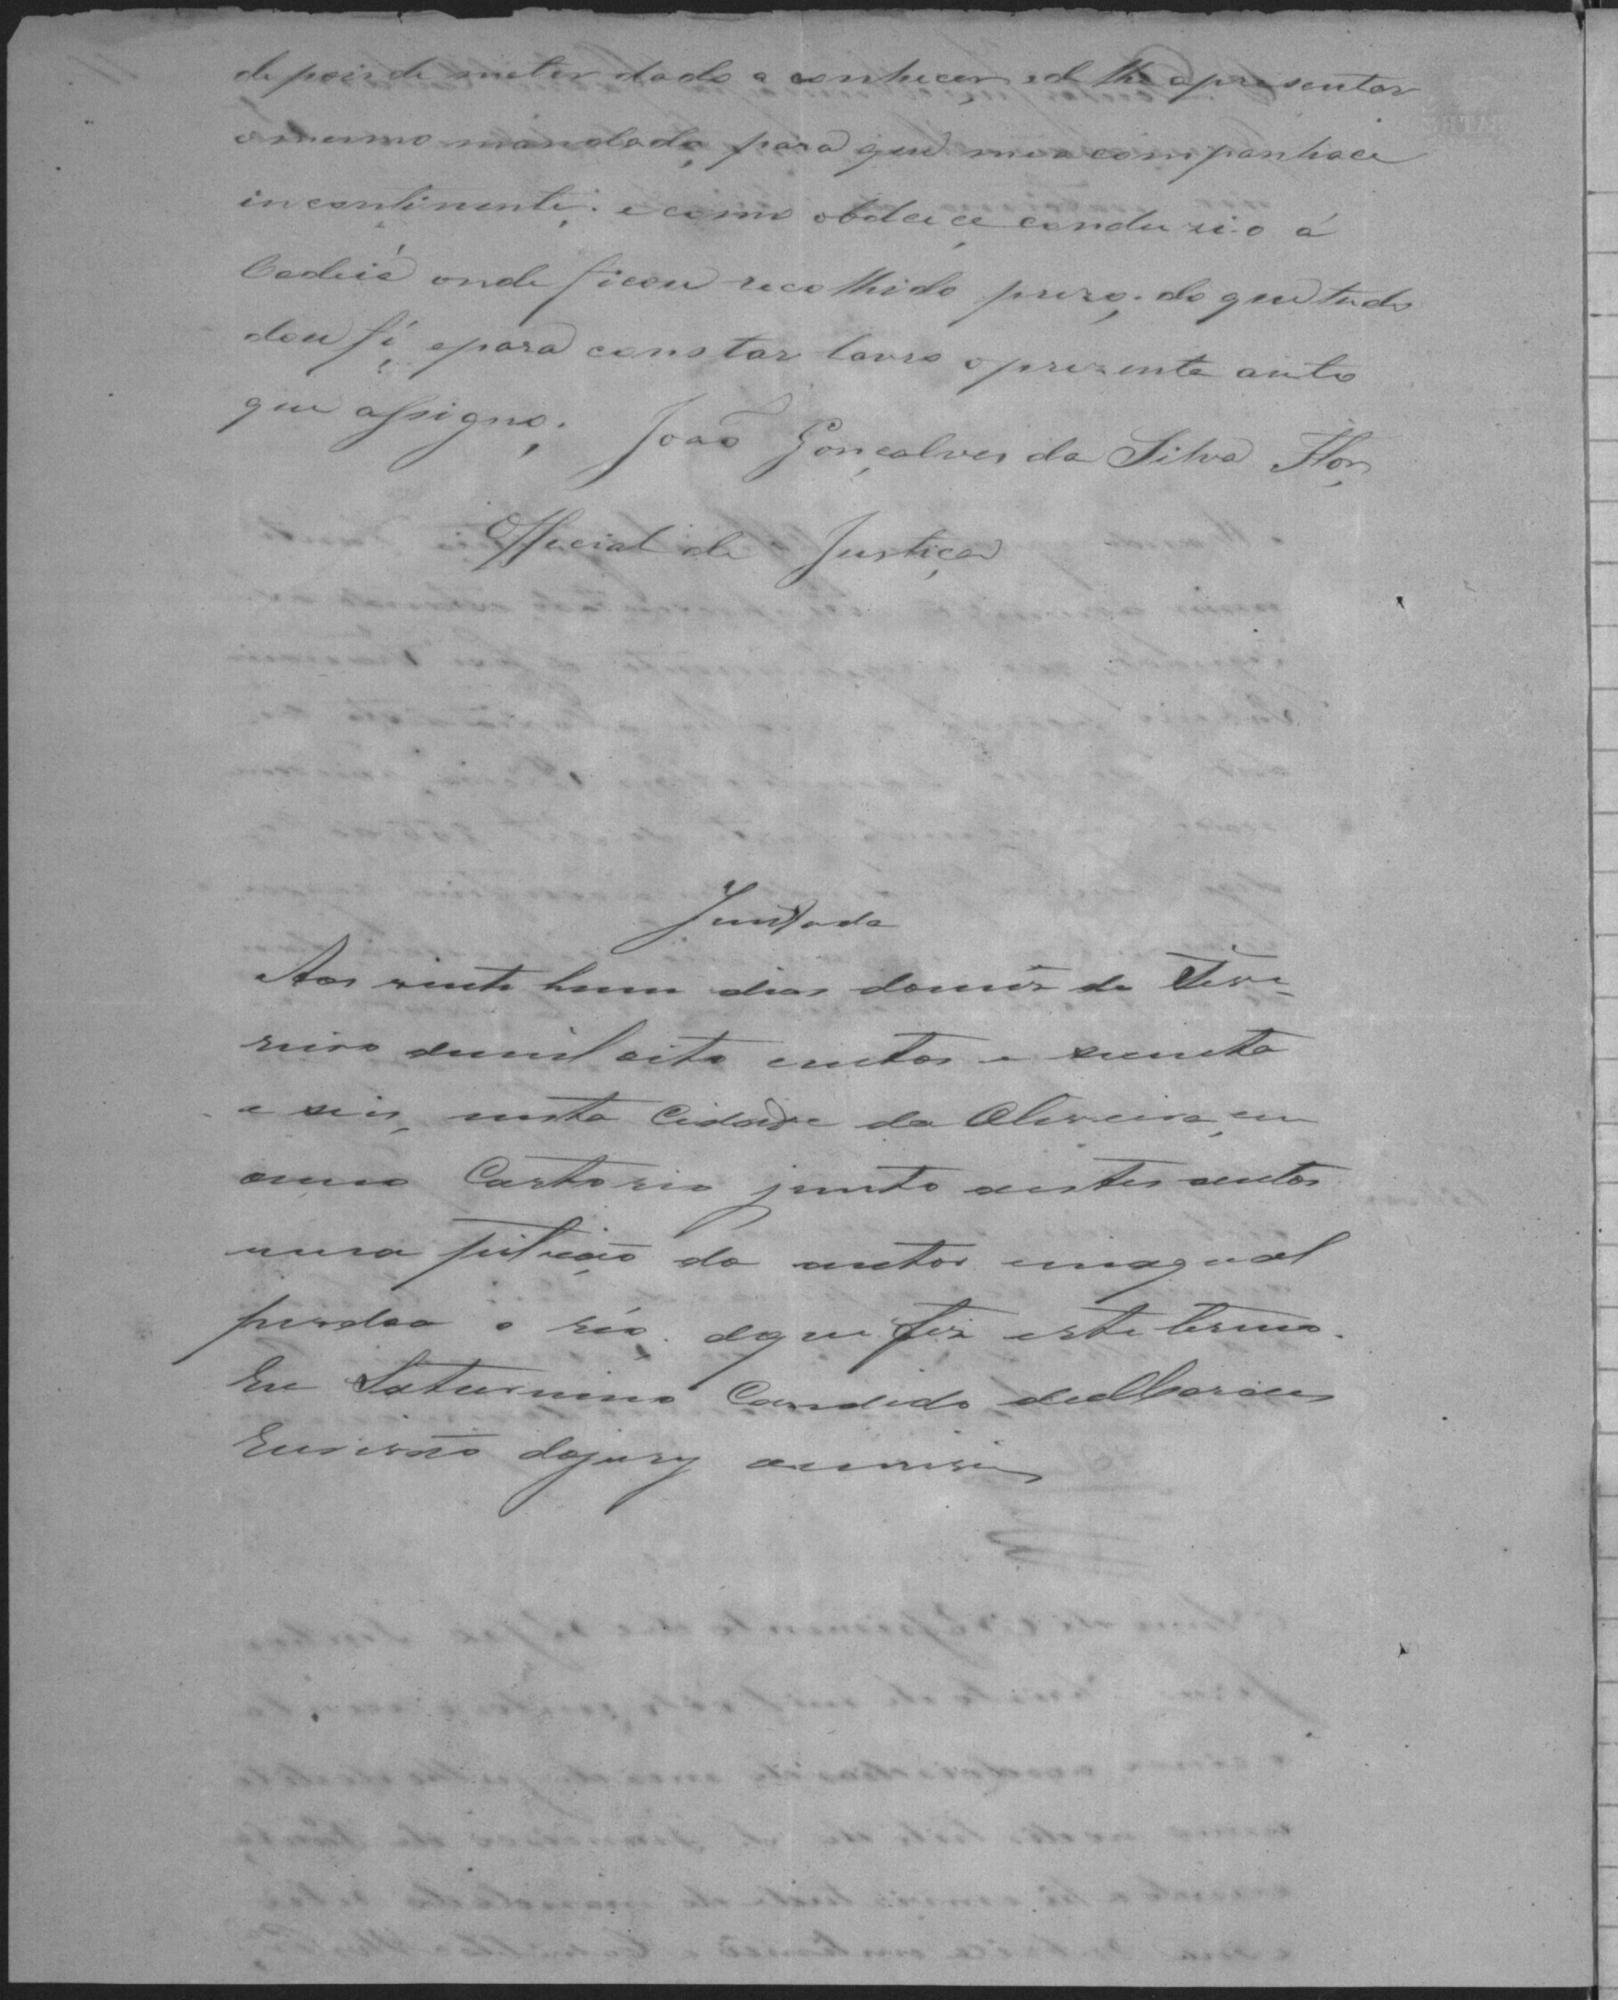 depois de meter dado a conhecer, ed lhe apresentar
o mesmo mandado, para que me acompanhace
incontinenti; e como obdece-ce conduzi-o á
Cadeiá onde ficou recolhido prezo; do que tudo
dou fé, e para constar lavro o prezente auto
que assigno. João Gonçalves da Silva Flor,
Official de Justiça
Juntada
Aos vinte hum dias do mez de Feve-
reiro de mil oito centos e secenta
e seis, nesta Cidade da Oliveira, em
meu Cartorio junto a estes autos
uma petição do autor em a qual
perdoa o réo, do que fiz este termo.
Eu Saturnino Candido de Moraes
Escrivão do jury o escrevi